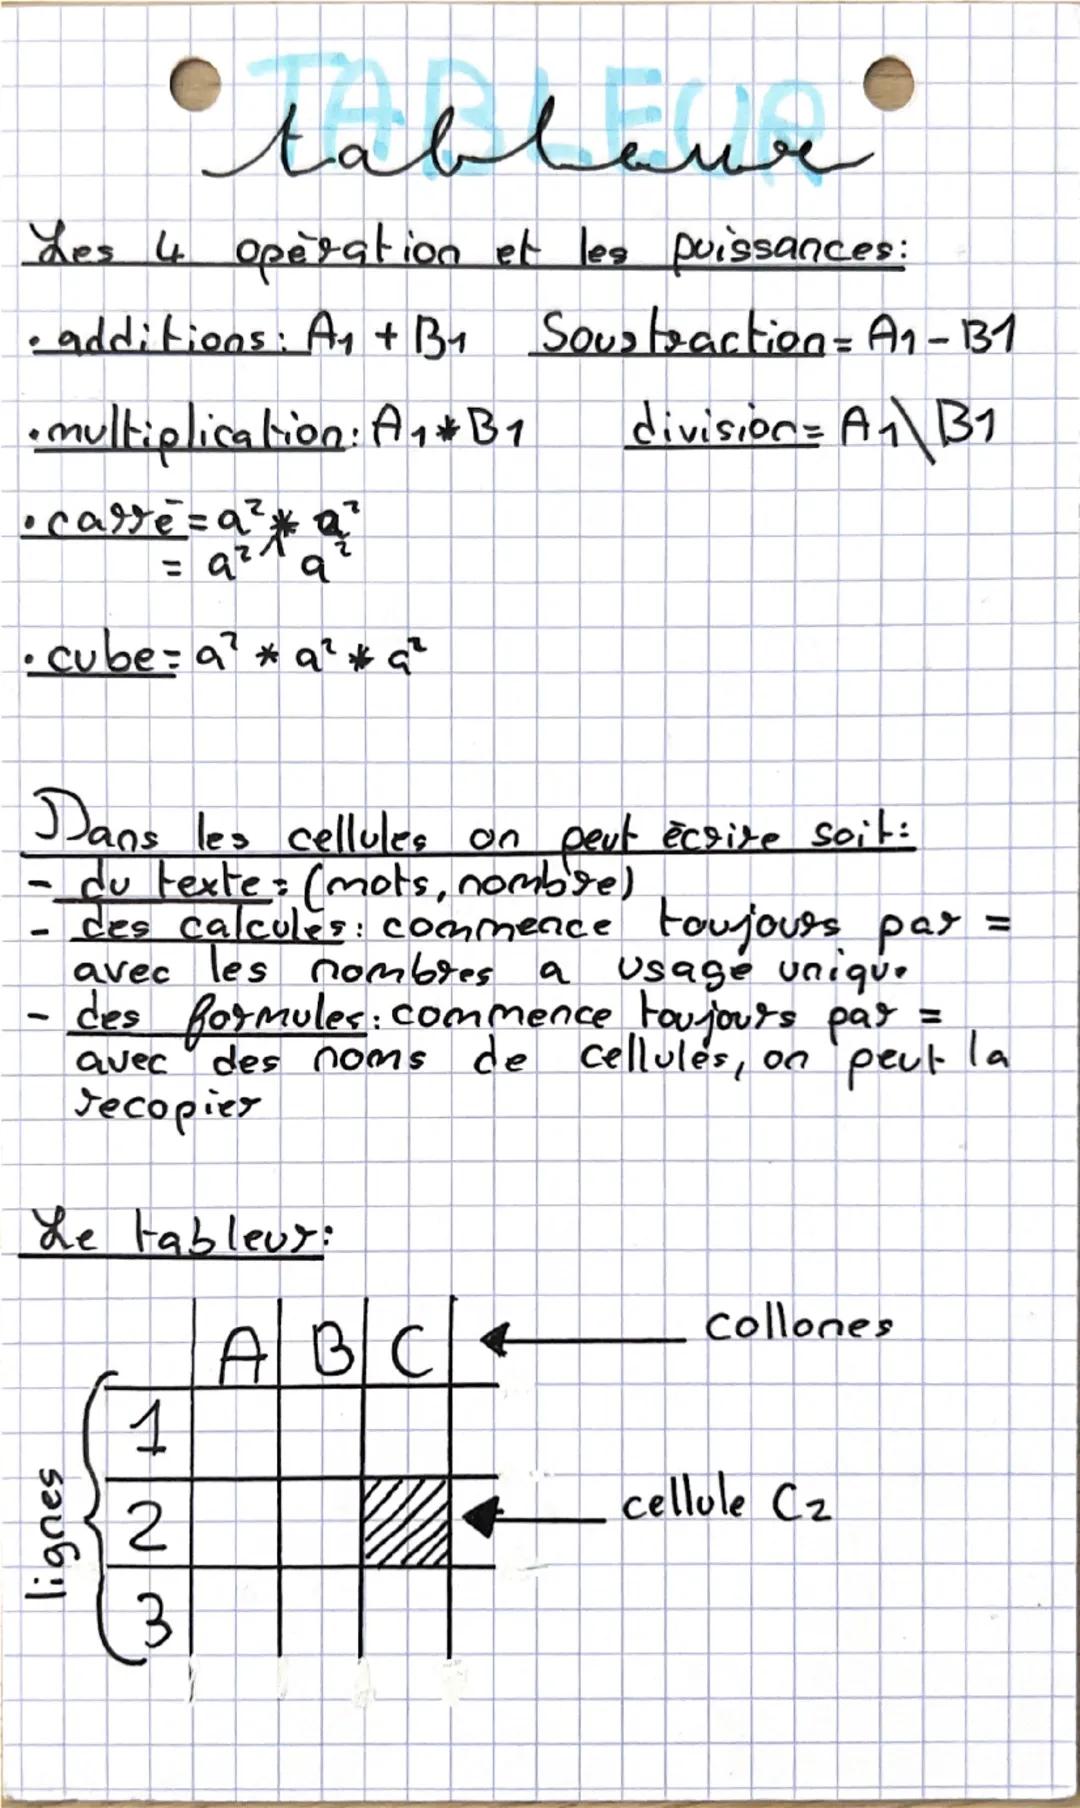 TABLEUR
tableur
Les 4 opèration et les puissances:
• additions: A1 + B1 Soustraction= A1 - B1
• multiplication: A1 * B1 division= A1\B1
• carrē = a² * a²
= a² ^ a²
• cube= a² * a² * a²
Dans les cellules on peut ècrire soit:
- du texte: (mots, nombre)
- des calcules: commence toujours par =
avec les nombres a usage unique
- des formules: commence toujours par =
avec des noms de cellules, on peut la
recopier
Le tableur:
A B C collones
1
2 cellule C2
3
lignes